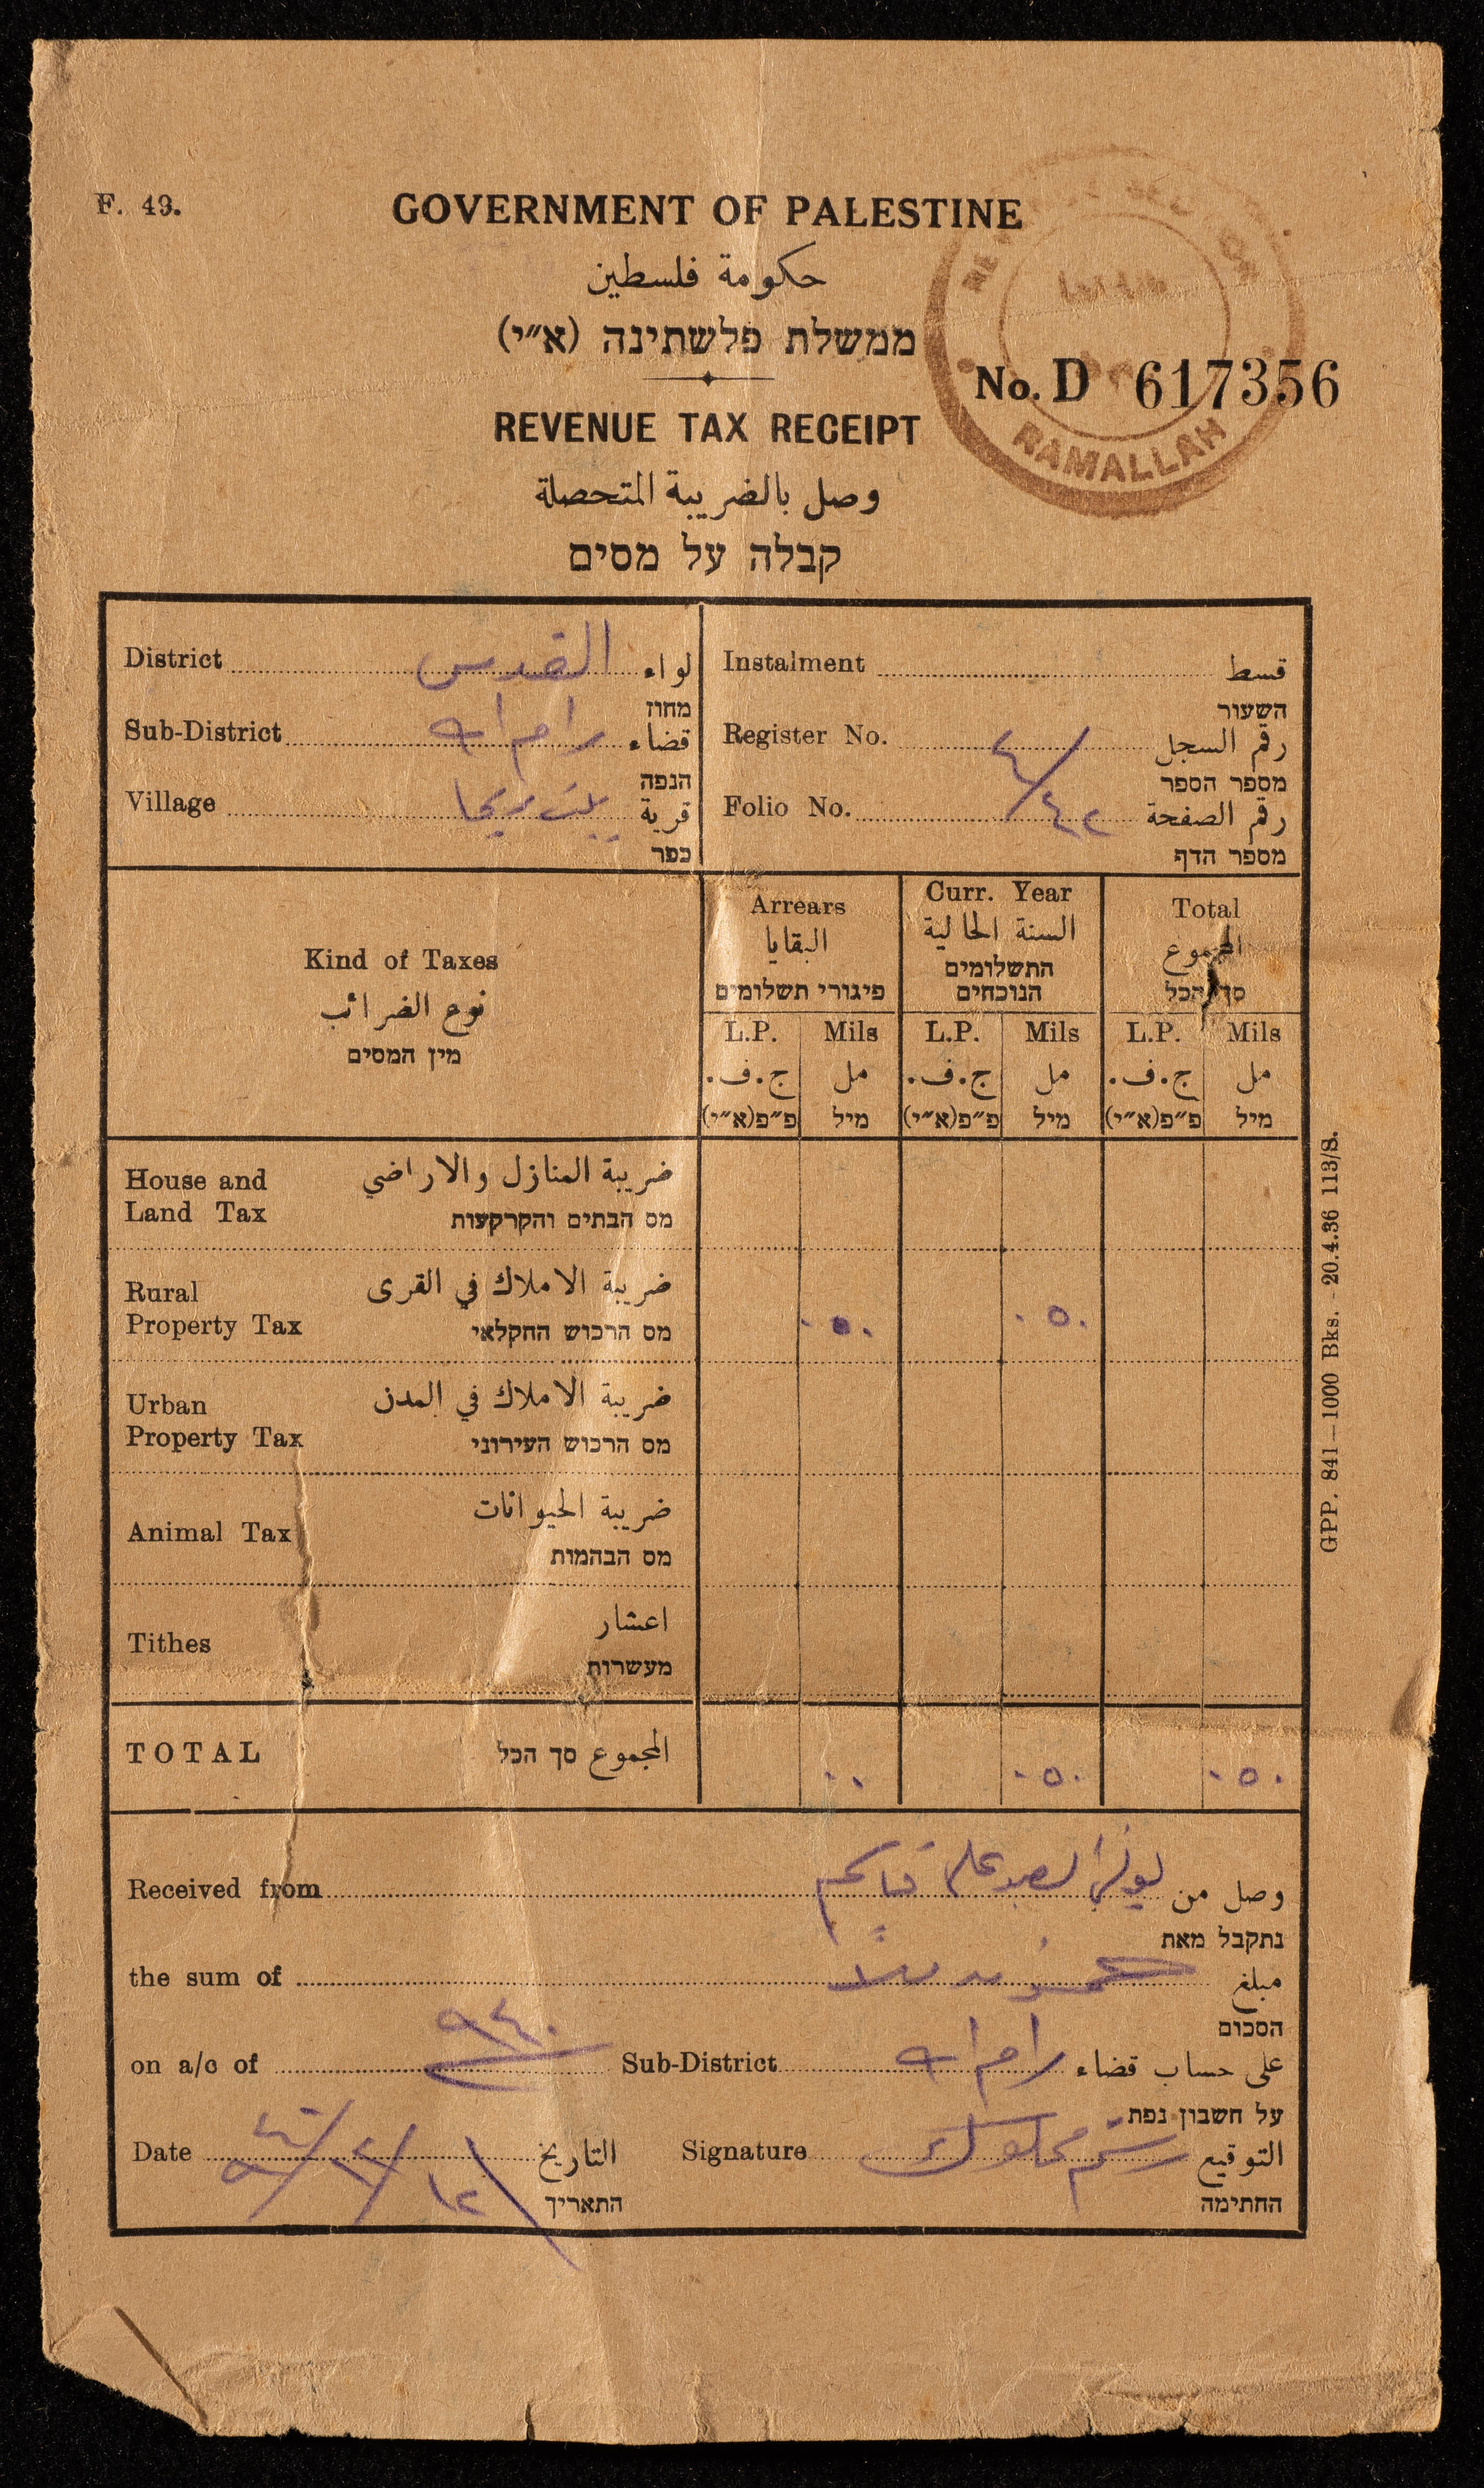 F. 49.
GOVERNMENT OF PALESTINE
حكومة فلسطين
ממשלת פלשתינה (א״י)
No. D 617356
RAMALLAH
REVENUE TAX RECEIPT
وصل بالضريبة المتحصلة
קבלה על מסים
District القدس لواء
מחוז
Sub-District رام الله قضاء
הנפה
Village قرية
כפר
Instalment قسط
השעור
Register No. ٤ رقم السجل
מספר הספר
Folio No. ٤٢ رقم الصفحة
מספר הדף
Kind of Taxes
نوع الضرائب
מין המסים
Arrears
البقايا
פיגורי תשלומים
Curr. Year
السنة الحالية
התשלומים
הנוכחים
Total
المجموع
סך הכל
L.P. Mils L.P. Mils L.P. Mils
ج.ف. مل ج.ف. مل ج.ف. مل
פ״פ(א״י) מיל פ״פ(א״י) מיל פ״פ(א״י) מיל
House and ضريبة المنازل والاراضي
Land Tax מס הבתים והקרקעות
Rural ضريبة الاملاك في القرى
Property Tax מס הרכוש החקלאי ٠٥٠ ٠٥٠
Urban ضريبة الاملاك في المدن
Property Tax מס הרכוש העירוני
Animal Tax ضريبة الحيوانات
מס הבהמות
Tithes اعشار
מעשרות
TOTAL المجموع סך הכל ٠٥٠ ٠٥٠
Received from وصل من
נתקבל מאת
the sum of مبلغ
הסכום
on a/c of ٩٤٠ Sub-District رام الله على حساب قضاء
על חשבון נפת
Date التاريخ Signature رستم التوقيع
התאריך החתימה
GPP. 841—1000 Bks. - 20.4.36 113/S.